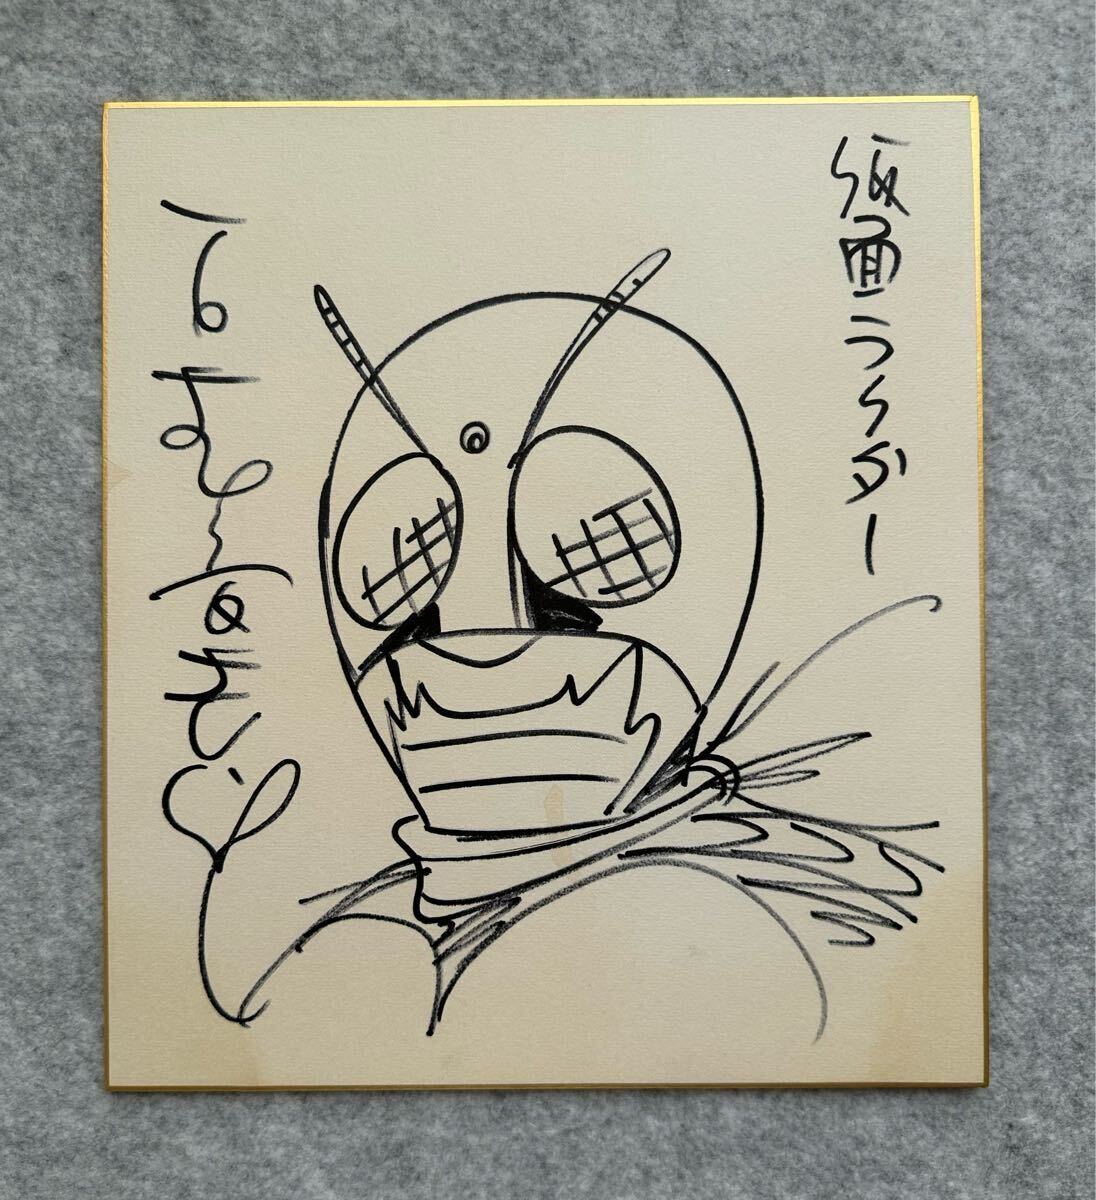 仮面ライダー
石森章太郎